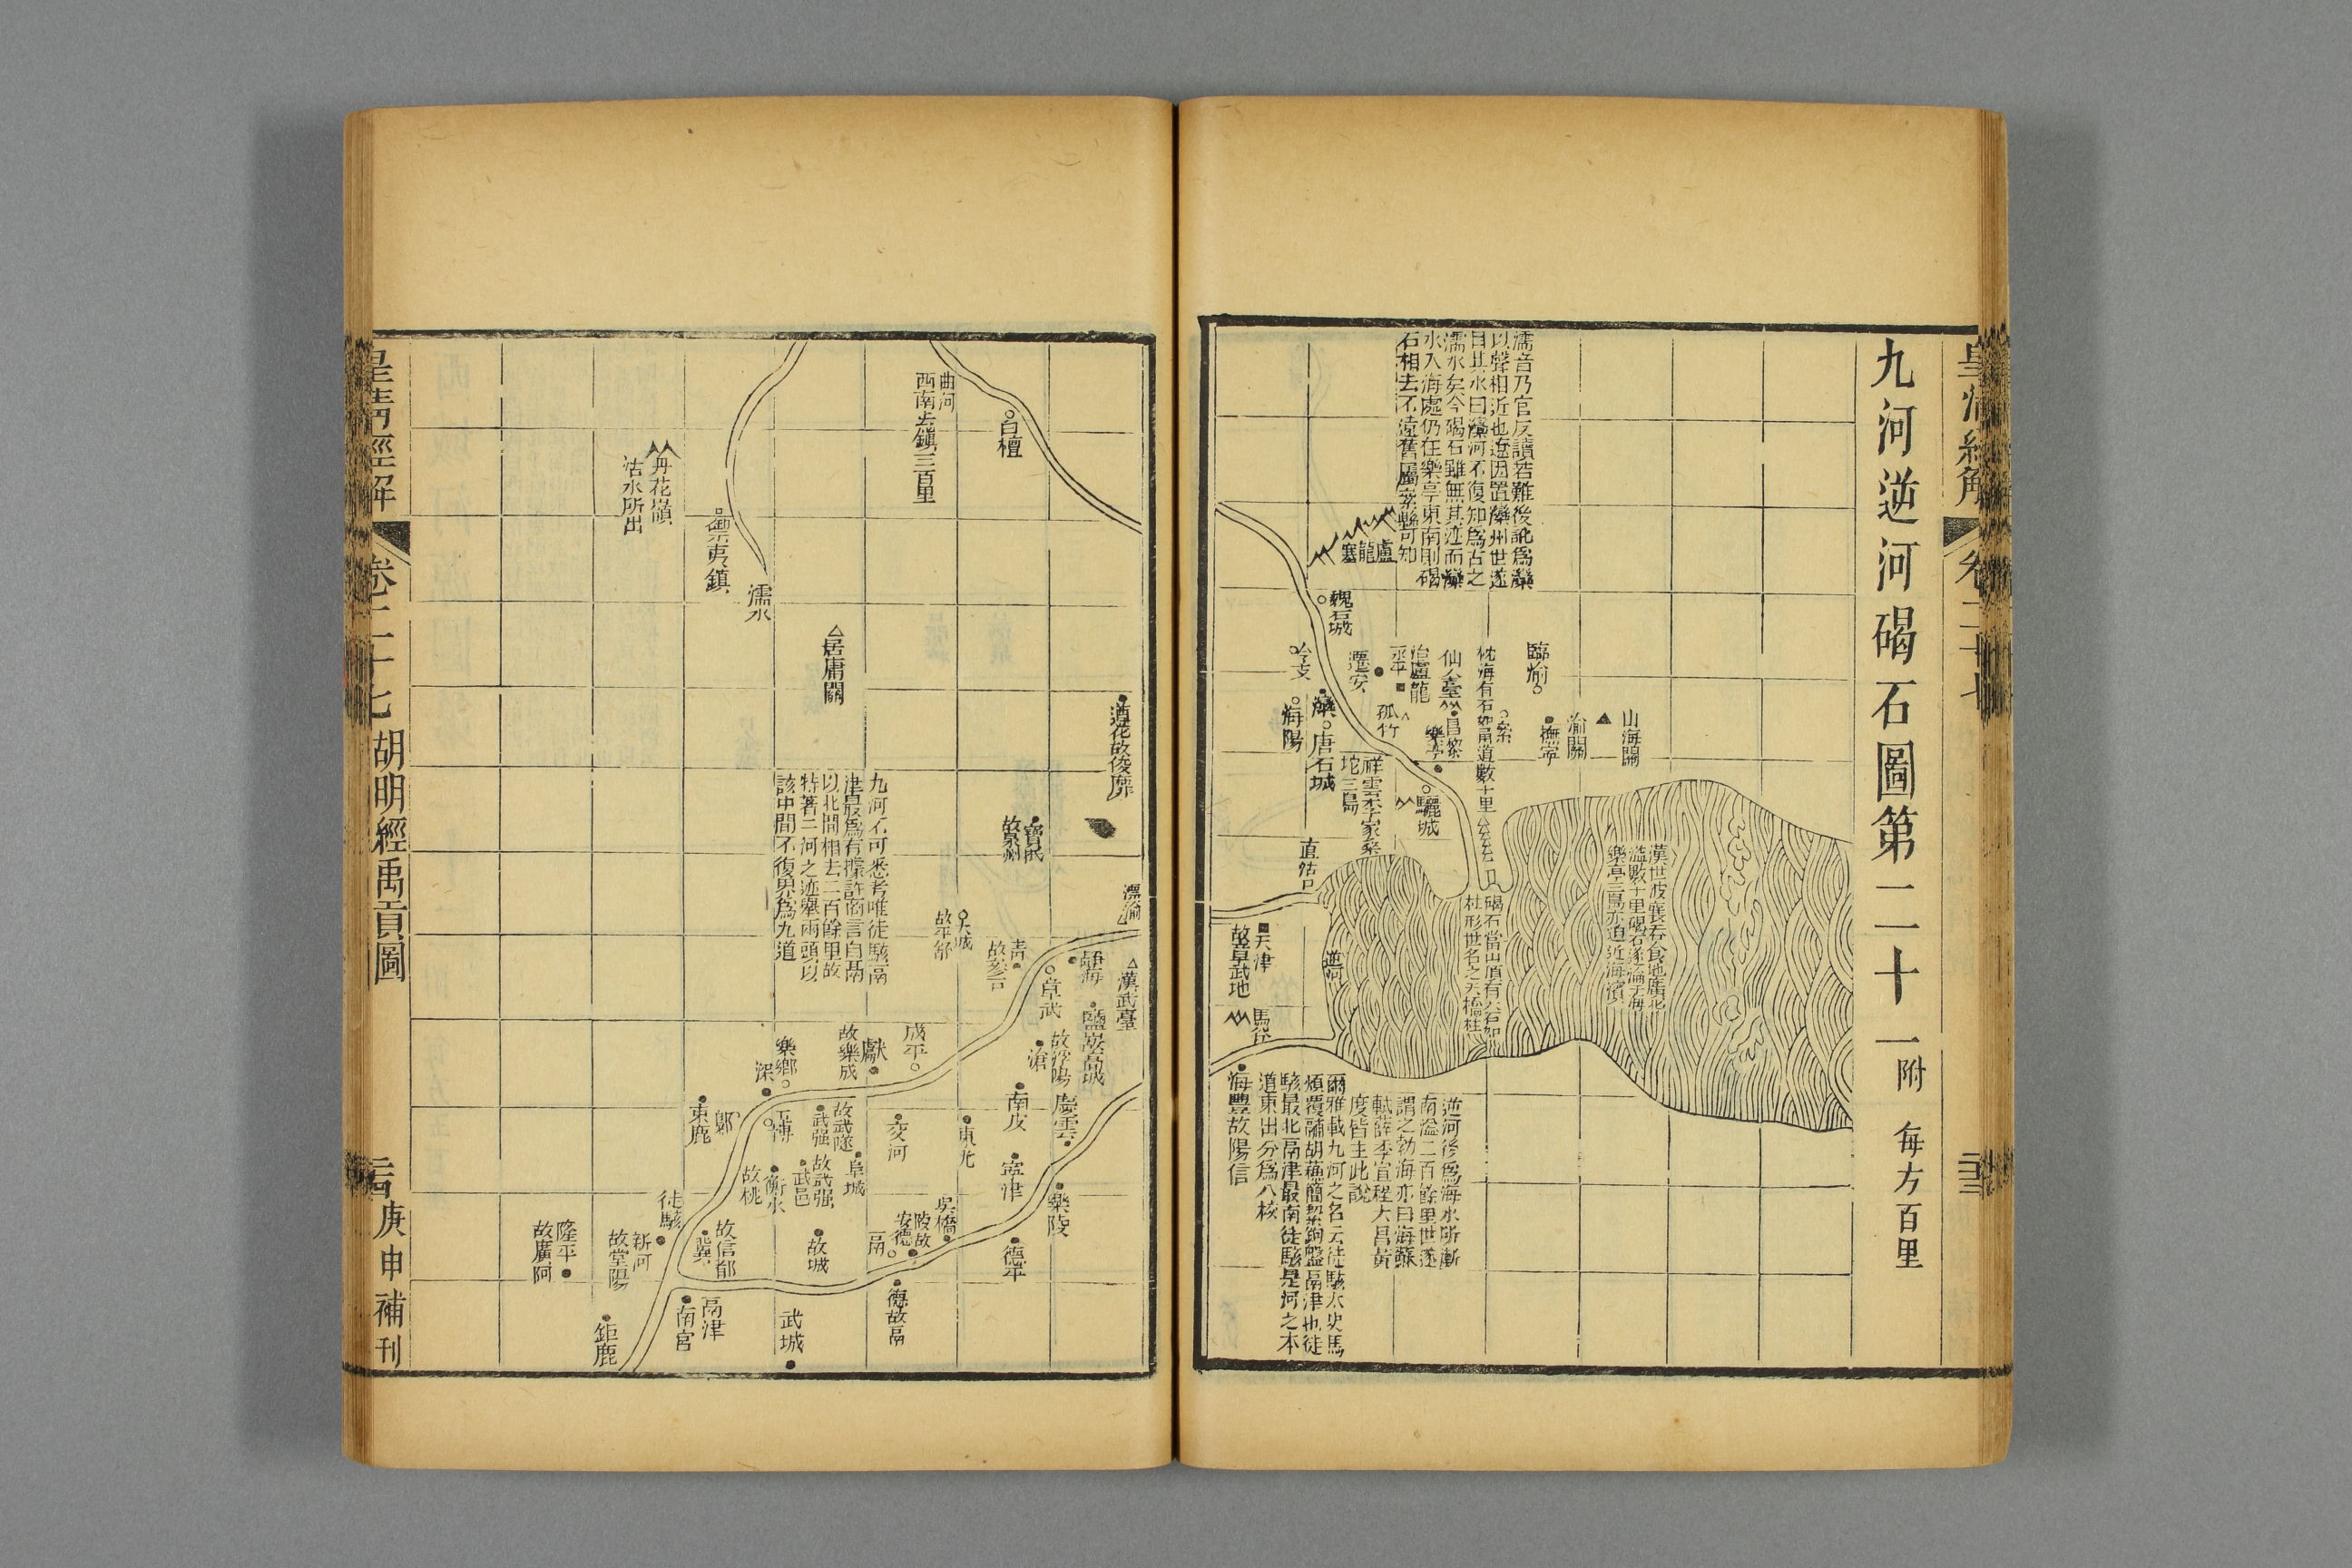 九河逆河碣石圖第二十一附 每方百里
濡音乃官反讀若難後訛爲灤
以聲相近也遼因置灤州世遂
目其水曰灤河不復知爲古之
濡水矣今碣石雖無其迹而灤
水入海處仍在樂亭東南則碣
石相去不遠舊屬絫縣可知
盧龍塞
魏石城
令支
海陽
灤
唐石城
遷安
永平
治盧龍
孤竹
仙人臺
昌黎
樂亭
枕海有石如甬道數十里
絫
臨渝
撫寧
渝關
山海關
祥雲李家桑
坨三島
驪城
直沽口
漢世波襄吞食地廣北
溢數十里碣石遂淪于海
樂亭三島亦迫近海濱
碣石當山頂有大石如
柱形世名之天橋柱
逆河
天津
故章武地
馬谷
海豐故陽信
逆河後爲海水所漸
南溢二百餘里世遂
謂之勃海亦曰海蘇
軾薛季宣程大昌黃
度皆主此說
爾雅載九河之名云徒駭太史馬
頰覆鬴胡蘇簡絜鉤盤鬲津也徒
駭最北鬲津最南徒駭是河之本
道東出分爲八枝
白檀
曲河
西南去鎮三百里
丹花嶺
沽水所出
禦夷鎮
濡水
居庸關
遵化故俊靡
寶坻
故泉州
九河不可悉考唯徒駭鬲
津最爲有據許商言自鬲
以北間相去二百餘里故
特著二河之迹舉兩頭以
該中間不復界爲九道
漂渝
大城
故平舒
青
故參合
靜海
漢武臺
章武
鹽山故高城
滄
故浮陽
慶雲
南皮
成平
獻
故樂成
樂鄉
深
下博
故武隧
武强
交河
東光
寧津
樂陵
束鹿
鄡
故桃
衡水
故武强
武邑
阜城
吳橋
陵故
安德
鬲
故城
德平
徒駭
故信都
冀
新河
故堂陽
隆平
故廣阿
鉅鹿
南宮
鬲津
武城
德故鬲
皇清經解
卷二十七
胡明經禹貢圖
庚申補刊